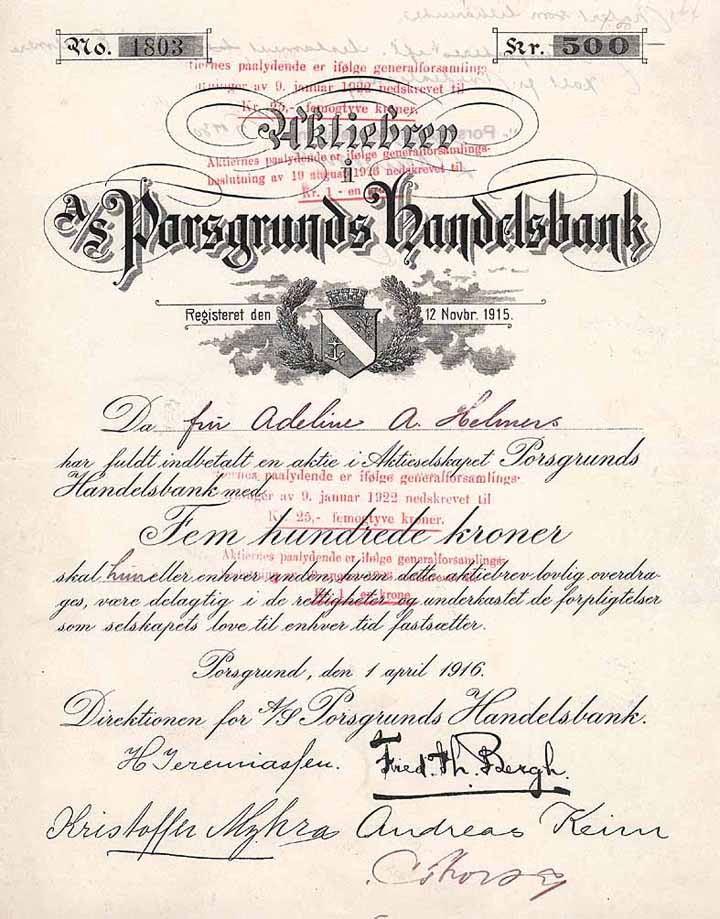 No. 1803
Kr. 500
Aktiernes paalydende er ifølge generalforsamlings-
af 9. januar 1922 nedskrevet til
Kr. 25,- femogtyve kroner.
Aktiebrev
Aktiernes paalydende er ifølge generalforsamlings-
beslutning av 19 august 1926 nedskrevet til
Kr. 1 - en krone
i
A/S Porsgrunds Handelsbank
Registeret den 12 Novbr. 1915.
Da frü Adeline A. Helmers
har fuldt indbetalt en aktie i Aktieselskapet Porsgrunds
Handelsbank med
generalforsamlings-
av 9. januar 1922 nedskrevet til
Kr. 25,- femogtyve kroner.
Fem hundrede kroner
Aktiernes paalydende er ifølge generalforsamlings-
skal hün eller enhver anden, hvem dette aktiebrev lovlig overdra-
Kr. 1 - en krone
ges, være delagtig i de rettigheter og underkastet de forpligtelser
som selskapets love til enhver tid fastsætter.
Porsgrund, den 1 april 1916.
Direktionen for A/S Porsgrunds Handelsbank.
H Jeremiassen. Fred. Th. Bergh.
Kristoffer Myhra Andreas Keim